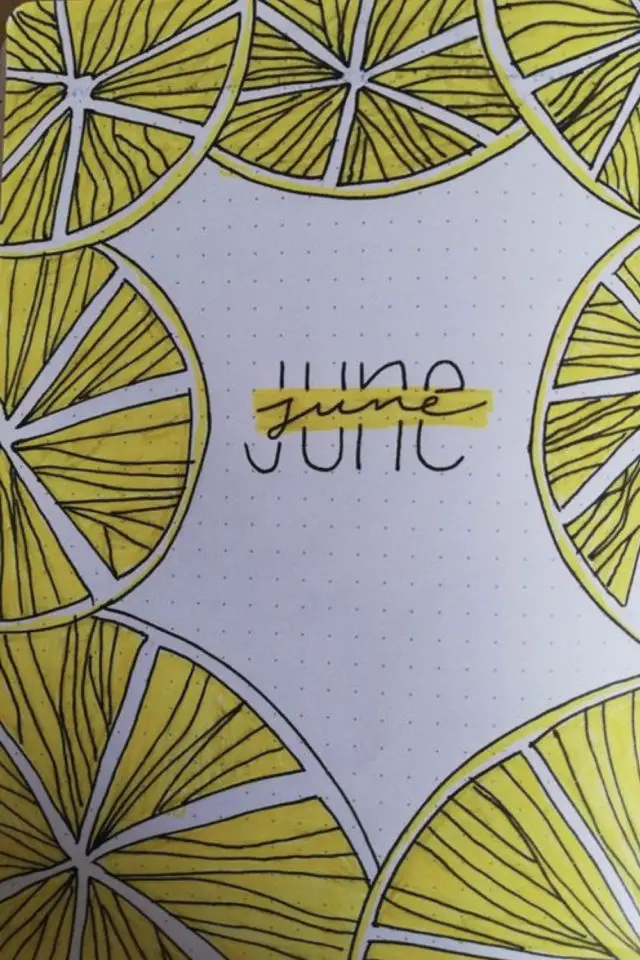 june
june